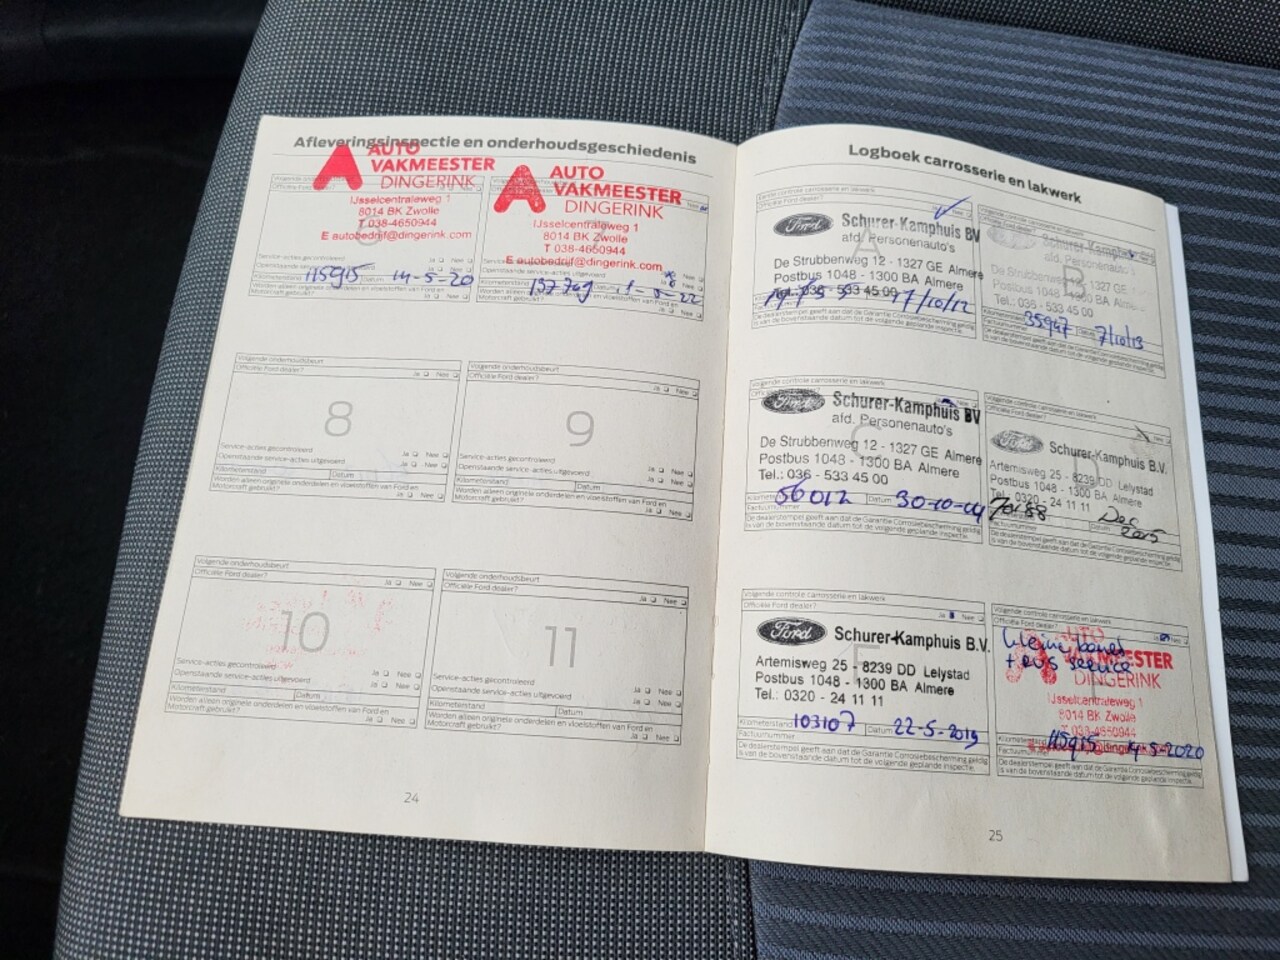 Afleveringsinspectie en onderhoudsgeschiedenis
AUTO
VAKMEESTER
DINGERINK
IJsselcentraleweg 1
8014 BK Zwolle
T 038-4650944
E autobedrijf@dingerink.com
Service-acties gecontroleerd
Openstaande service-acties uitgevoerd
Kilometerstand 115915 Datum 14-5-20
Worden alleen originele onderdelen en vloeistoffen van Ford en
Motorcraft gebruikt? Ja Nee
AUTO
VAKMEESTER
DINGERINK
IJsselcentraleweg 1
8014 BK Zwolle
T 038-4650944
E autobedrijf@dingerink.com
Openstaande service-acties uitgevoerd
Kilometerstand 137749
Worden alleen originele onderdelen en vloeistoffen van Ford en
Motorcraft gebruikt? Ja Nee
Volgende onderhoudsbeurt
Officiële Ford dealer? Ja Nee
8
Service-acties gecontroleerd Ja Nee
Openstaande service-acties uitgevoerd Ja Nee
Kilometerstand Datum
Worden alleen originele onderdelen en vloeistoffen van Ford en
Motorcraft gebruikt? Ja Nee
Volgende onderhoudsbeurt
Officiële Ford dealer? Ja Nee
9
Service-acties gecontroleerd Ja Nee
Openstaande service-acties uitgevoerd Ja Nee
Kilometerstand Datum
Worden alleen originele onderdelen en vloeistoffen van Ford en
Motorcraft gebruikt? Ja Nee
Volgende onderhoudsbeurt
Officiële Ford dealer? Ja Nee
10
Service-acties gecontroleerd Ja Nee
Openstaande service-acties uitgevoerd Ja Nee
Kilometerstand Datum
Worden alleen originele onderdelen en vloeistoffen van Ford en
Motorcraft gebruikt? Ja Nee
Volgende onderhoudsbeurt
Officiële Ford dealer? Ja Nee
11
Service-acties gecontroleerd Ja Nee
Openstaande service-acties uitgevoerd Ja Nee
Kilometerstand Datum
Worden alleen originele onderdelen en vloeistoffen van Ford en
Motorcraft gebruikt? Ja Nee
24
Logboek carrosserie en lakwerk
Eerste controle carrosserie en lakwerk
Officiële Ford dealer?
Ford Schurer-Kamphuis BV
afd. Personenauto's
De Strubbenweg 12 - 1327 GE Almere
Postbus 1048 - 1300 BA Almere
Tel.: 036 - 533 45 00
17/10/12
De dealerstempel geeft aan dat de Garantie Corrosiebescherming geldig
is van de bovenstaande datum tot de volgende geplande inspectie.
B
Schurer-Kamphuis
afd. Personenauto's
De Strubbenweg 12 - 1327 GE
Postbus 1048 - 1300 BA Almere
Tel.: 036 - 533 45 00
35947 Datum 7/10/13
Factuurnummer
De dealerstempel geeft aan dat de Garantie Corrosiebescherming geldig
is van de bovenstaande datum tot de volgende geplande inspectie.
Volgende controle carrosserie en lakwerk
Ford Schurer-Kamphuis BV
afd. Personenauto's
De Strubbenweg 12 - 1327 GE Almere
Postbus 1048 - 1300 BA Almere
Tel.: 036 - 533 45 00
56012 Datum 30-10-
Factuurnummer
De dealerstempel geeft aan dat de Garantie Corrosiebescherming geldig
is van de bovenstaande datum tot de volgende geplande inspectie.
Volgende controle carrosserie en lakwerk
Officiële Ford dealer?
Ford Schurer-Kamphuis B.V.
Artemisweg 25 - 8239 DD Lelystad
Postbus 1048 - 1300 BA Almere
Tel. 0320 - 24 11 11
70188 Dec
Factuurnummer Datum 2015
De dealerstempel geeft aan dat de Garantie Corrosiebescherming geldig
is van de bovenstaande datum tot de volgende geplande inspectie.
Volgende controle carrosserie en lakwerk
Officiële Ford dealer? Ja
Ford Schurer-Kamphuis B.V.
Artemisweg 25 - 8239 DD Lelystad
Postbus 1048 - 1300 BA Almere
Tel.: 0320 - 24 11 11
Kilometerstand 103107 Datum 22-5-2019
Factuurnummer
De dealerstempel geeft aan dat de Garantie Corrosiebescherming geldig
is van de bovenstaande datum tot de volgende geplande inspectie.
Volgende controle carrosserie en lakwerk
Officiële Ford dealer? Ja Nee
Kleine beurt
service
AUTO
VAKMEESTER
DINGERINK
IJsselcentraleweg 1
8014 BK Zwolle
T 038-4650944
115915 14-5-2020
De dealerstempel geeft aan dat de Garantie Corrosiebescherming geldig
is van de bovenstaande datum tot de volgende geplande inspectie.
25